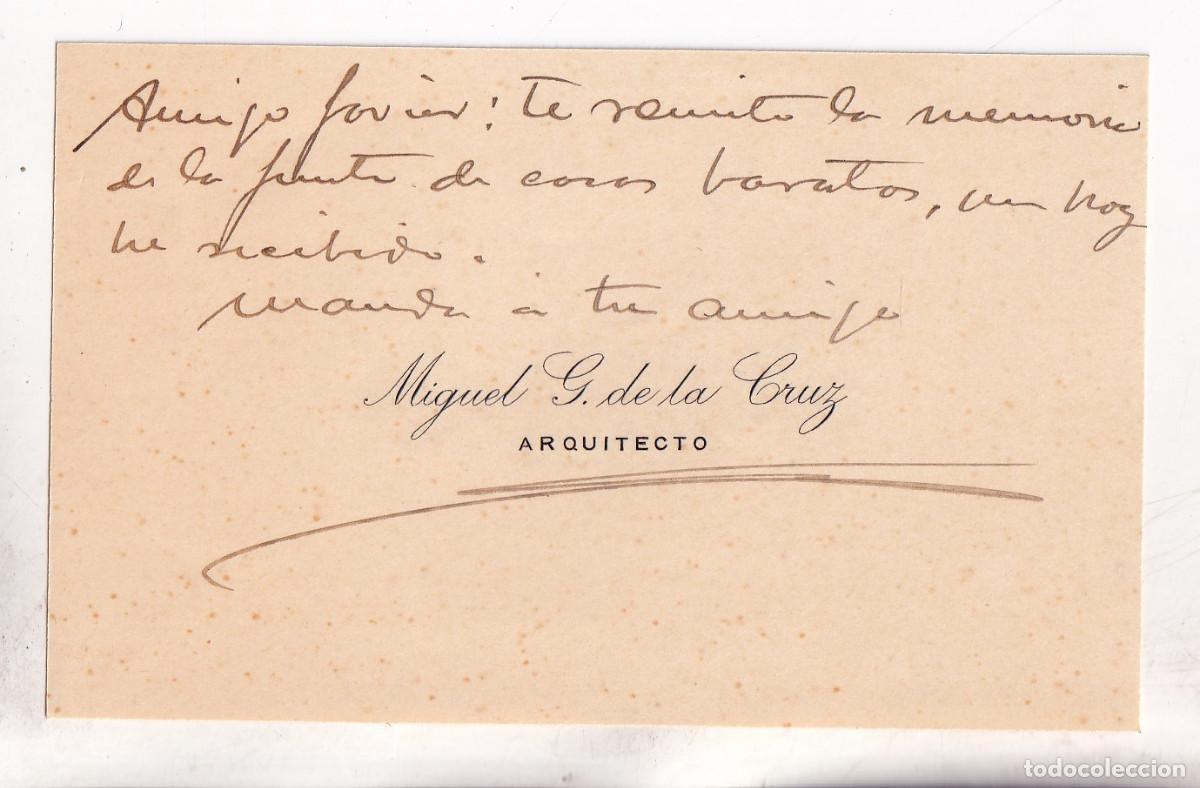 Amigo Javier: te remito la memoria
de la Junta de casas baratas, que hoy
he recibido.
Manda á tu amigo
Miguel G. de la Cruz
ARQUITECTO
todocoleccion